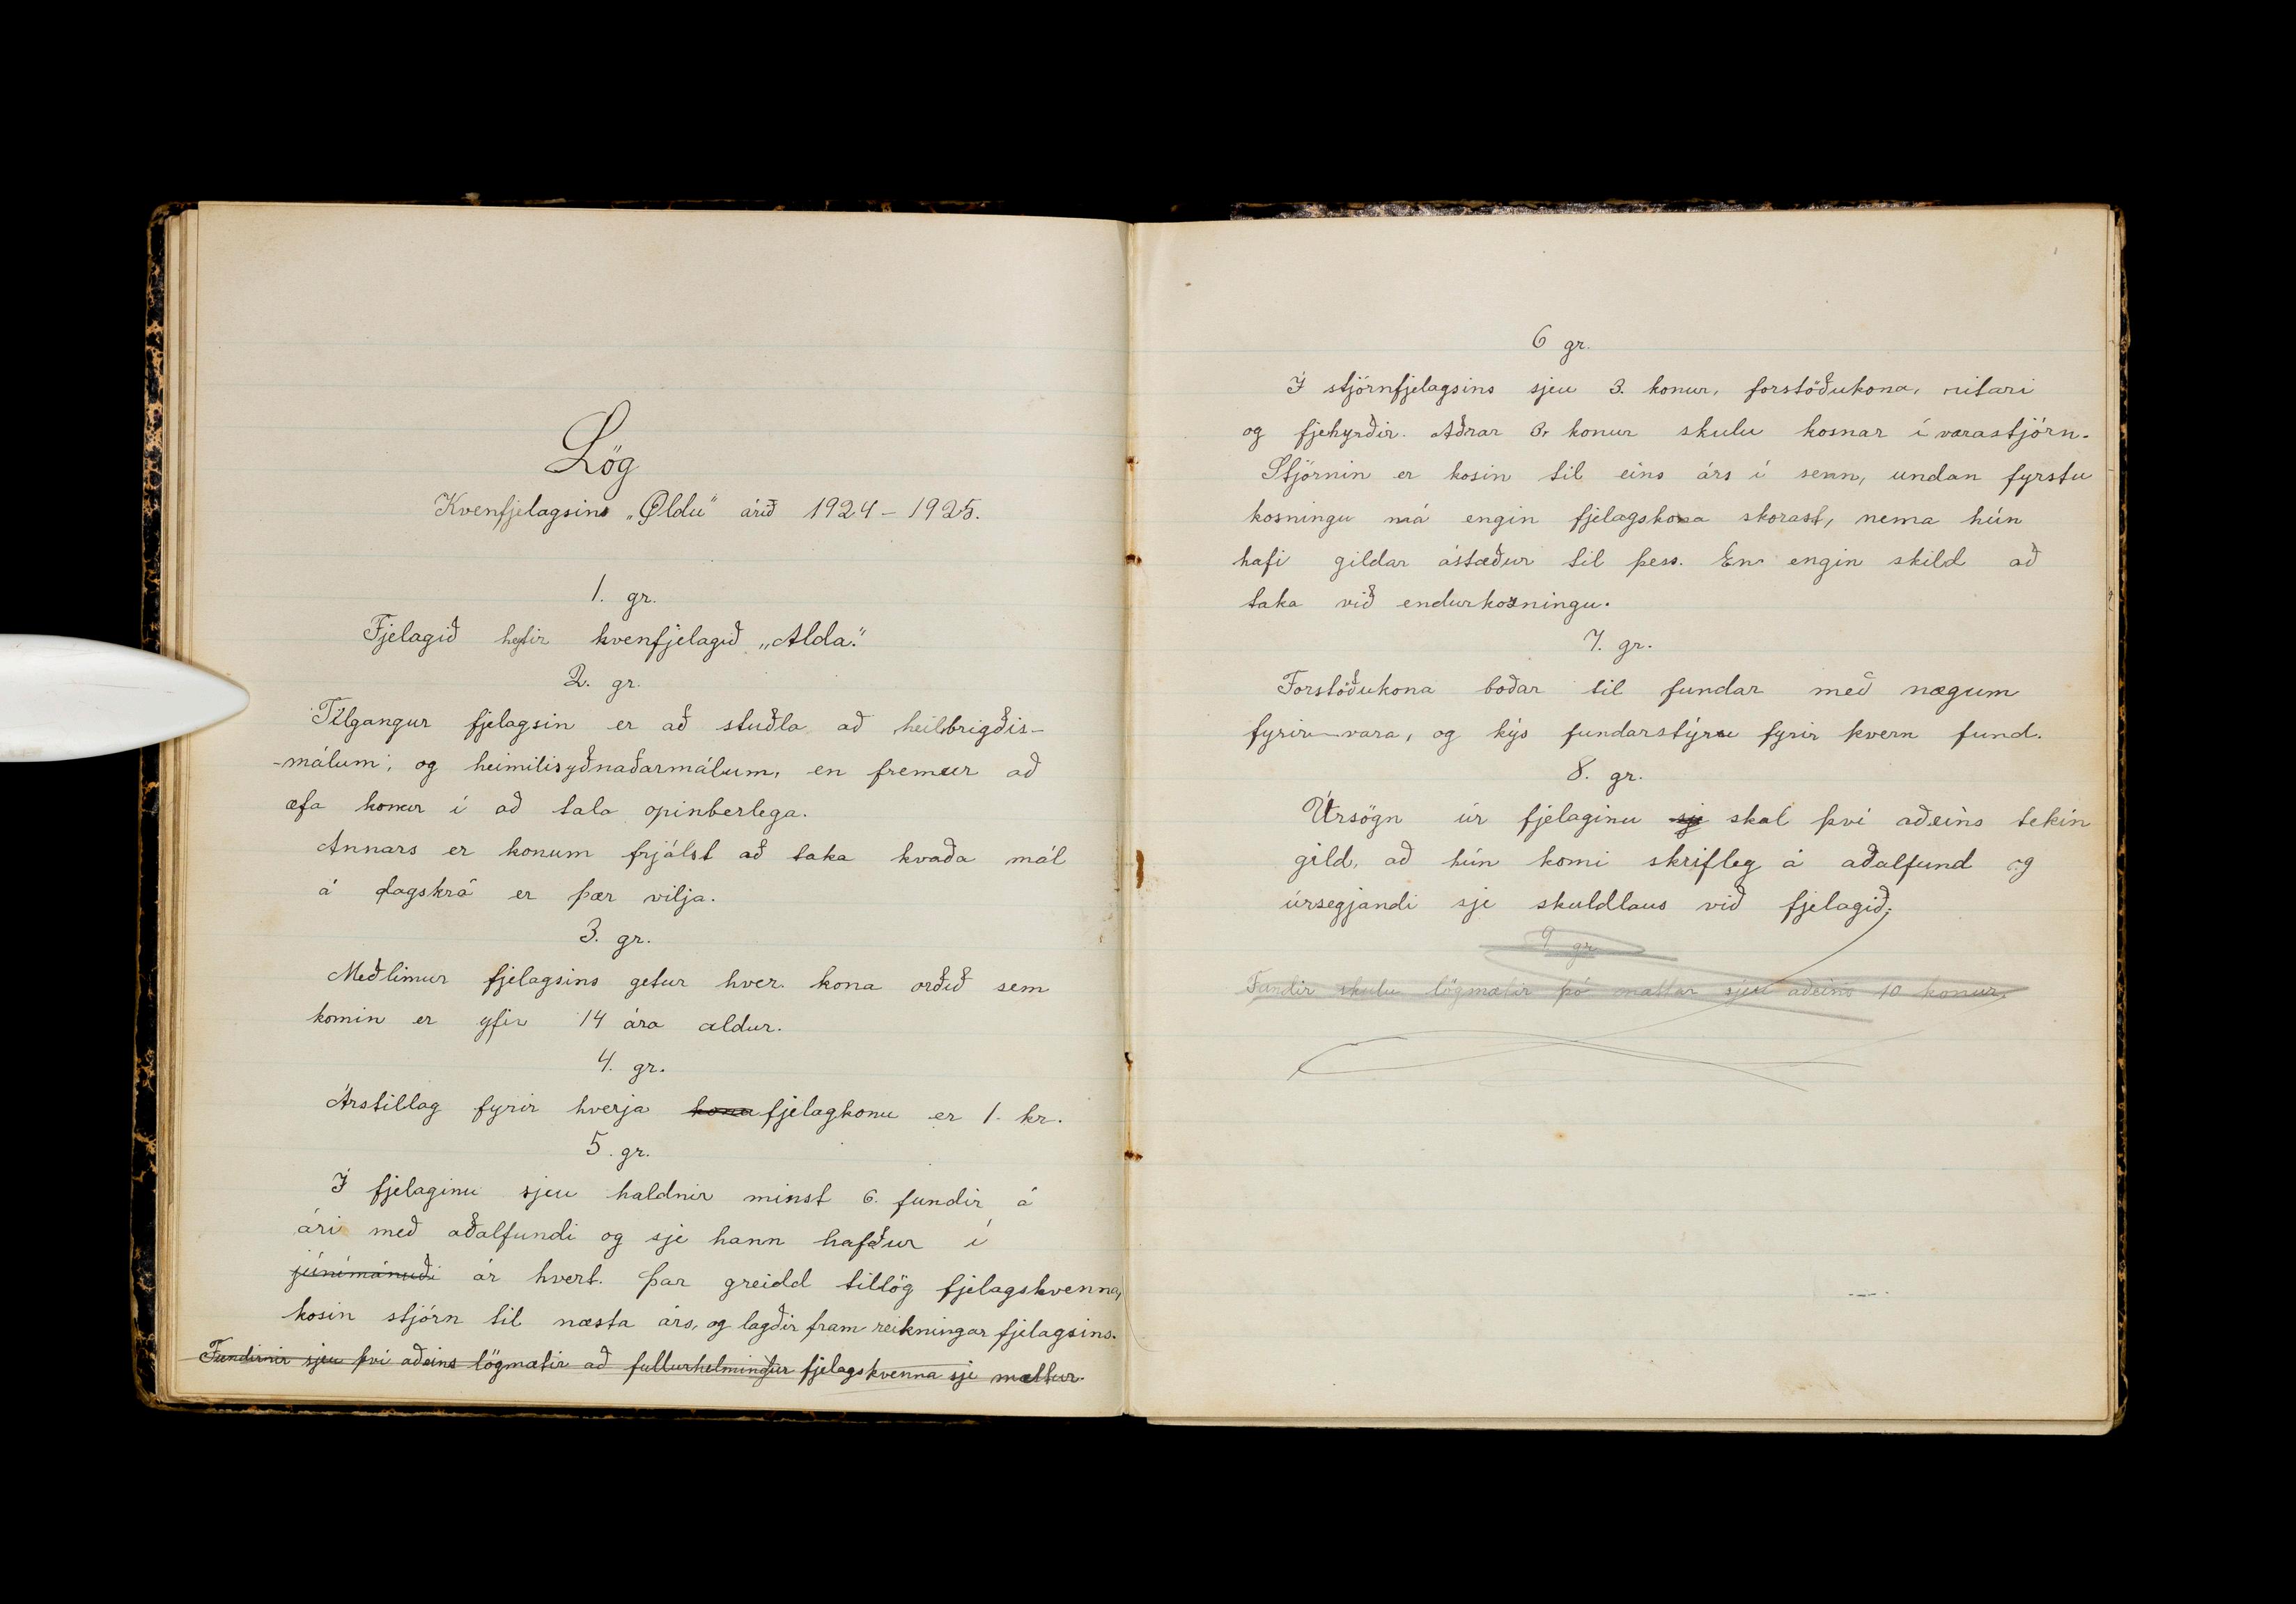 Lög
Kvenfjelagsins „Öldu" árið 1924-1925.
1. gr.
Fjelagið heytir kvenfjelagið „Alda."
2. gr.
Tilgangur fjelagsin er að stuðla að heilbrigðis-
-málum, og heimilisyðnaðarmálum, en fremur að
æfa konur í að tala opinberlega.
Annars er konum frjálst að taka hvaða mál
á dagskrá er þær vilja.
3. gr.
Meðlimur fjelagsins getur hver kona orðið sem
komin er yfir 14 ára aldur.
4. gr.
Árstillag fyrir hverja kona fjelagkonu er 1. kr.
5. gr.
Í fjelaginu sjeu haldnir minst 6. fundir á
ári með aðalfundi og sje hann hafður í
júnímánuði ár hvert. Þar greidd tillög fjelagskvenna,
kosin stjórn til næsta árs, og lagðir fram reikningar fjelagsins.
Fundirnir sjeu því aðeins lögmætir að fullurhelmingur fjelagskvenna sje mættur.
6 gr.
Í stjórnfjelagsins sjeu 3. konur, forstöðukona, ritari
og fjehyrðir. Aðrar 3. konur skulu kosnar í varastjórn.
Stjórnin er kosin til eins árs í senn, undan fyrstu
kosningu má engin fjelagskona skorast, nema hún
hafi gildar ástæður til þess. En engin skild að
taka við endurkosningu.
7. gr.
Forstöðukona boðar til fundar með nægum
fyrir-vara, og kýs fundarstýru fyrir hvern fund.
8. gr.
Úrsögn úr fjelaginu sje skal því aðeins tekin
gild, að hún komi skrifleg á aðalfund og
úrsegjandi sje skuldlaus við fjelagið;
9. gr.
Fundir skulu lögmætir þó mættar sjeu aðeins 10 konur.